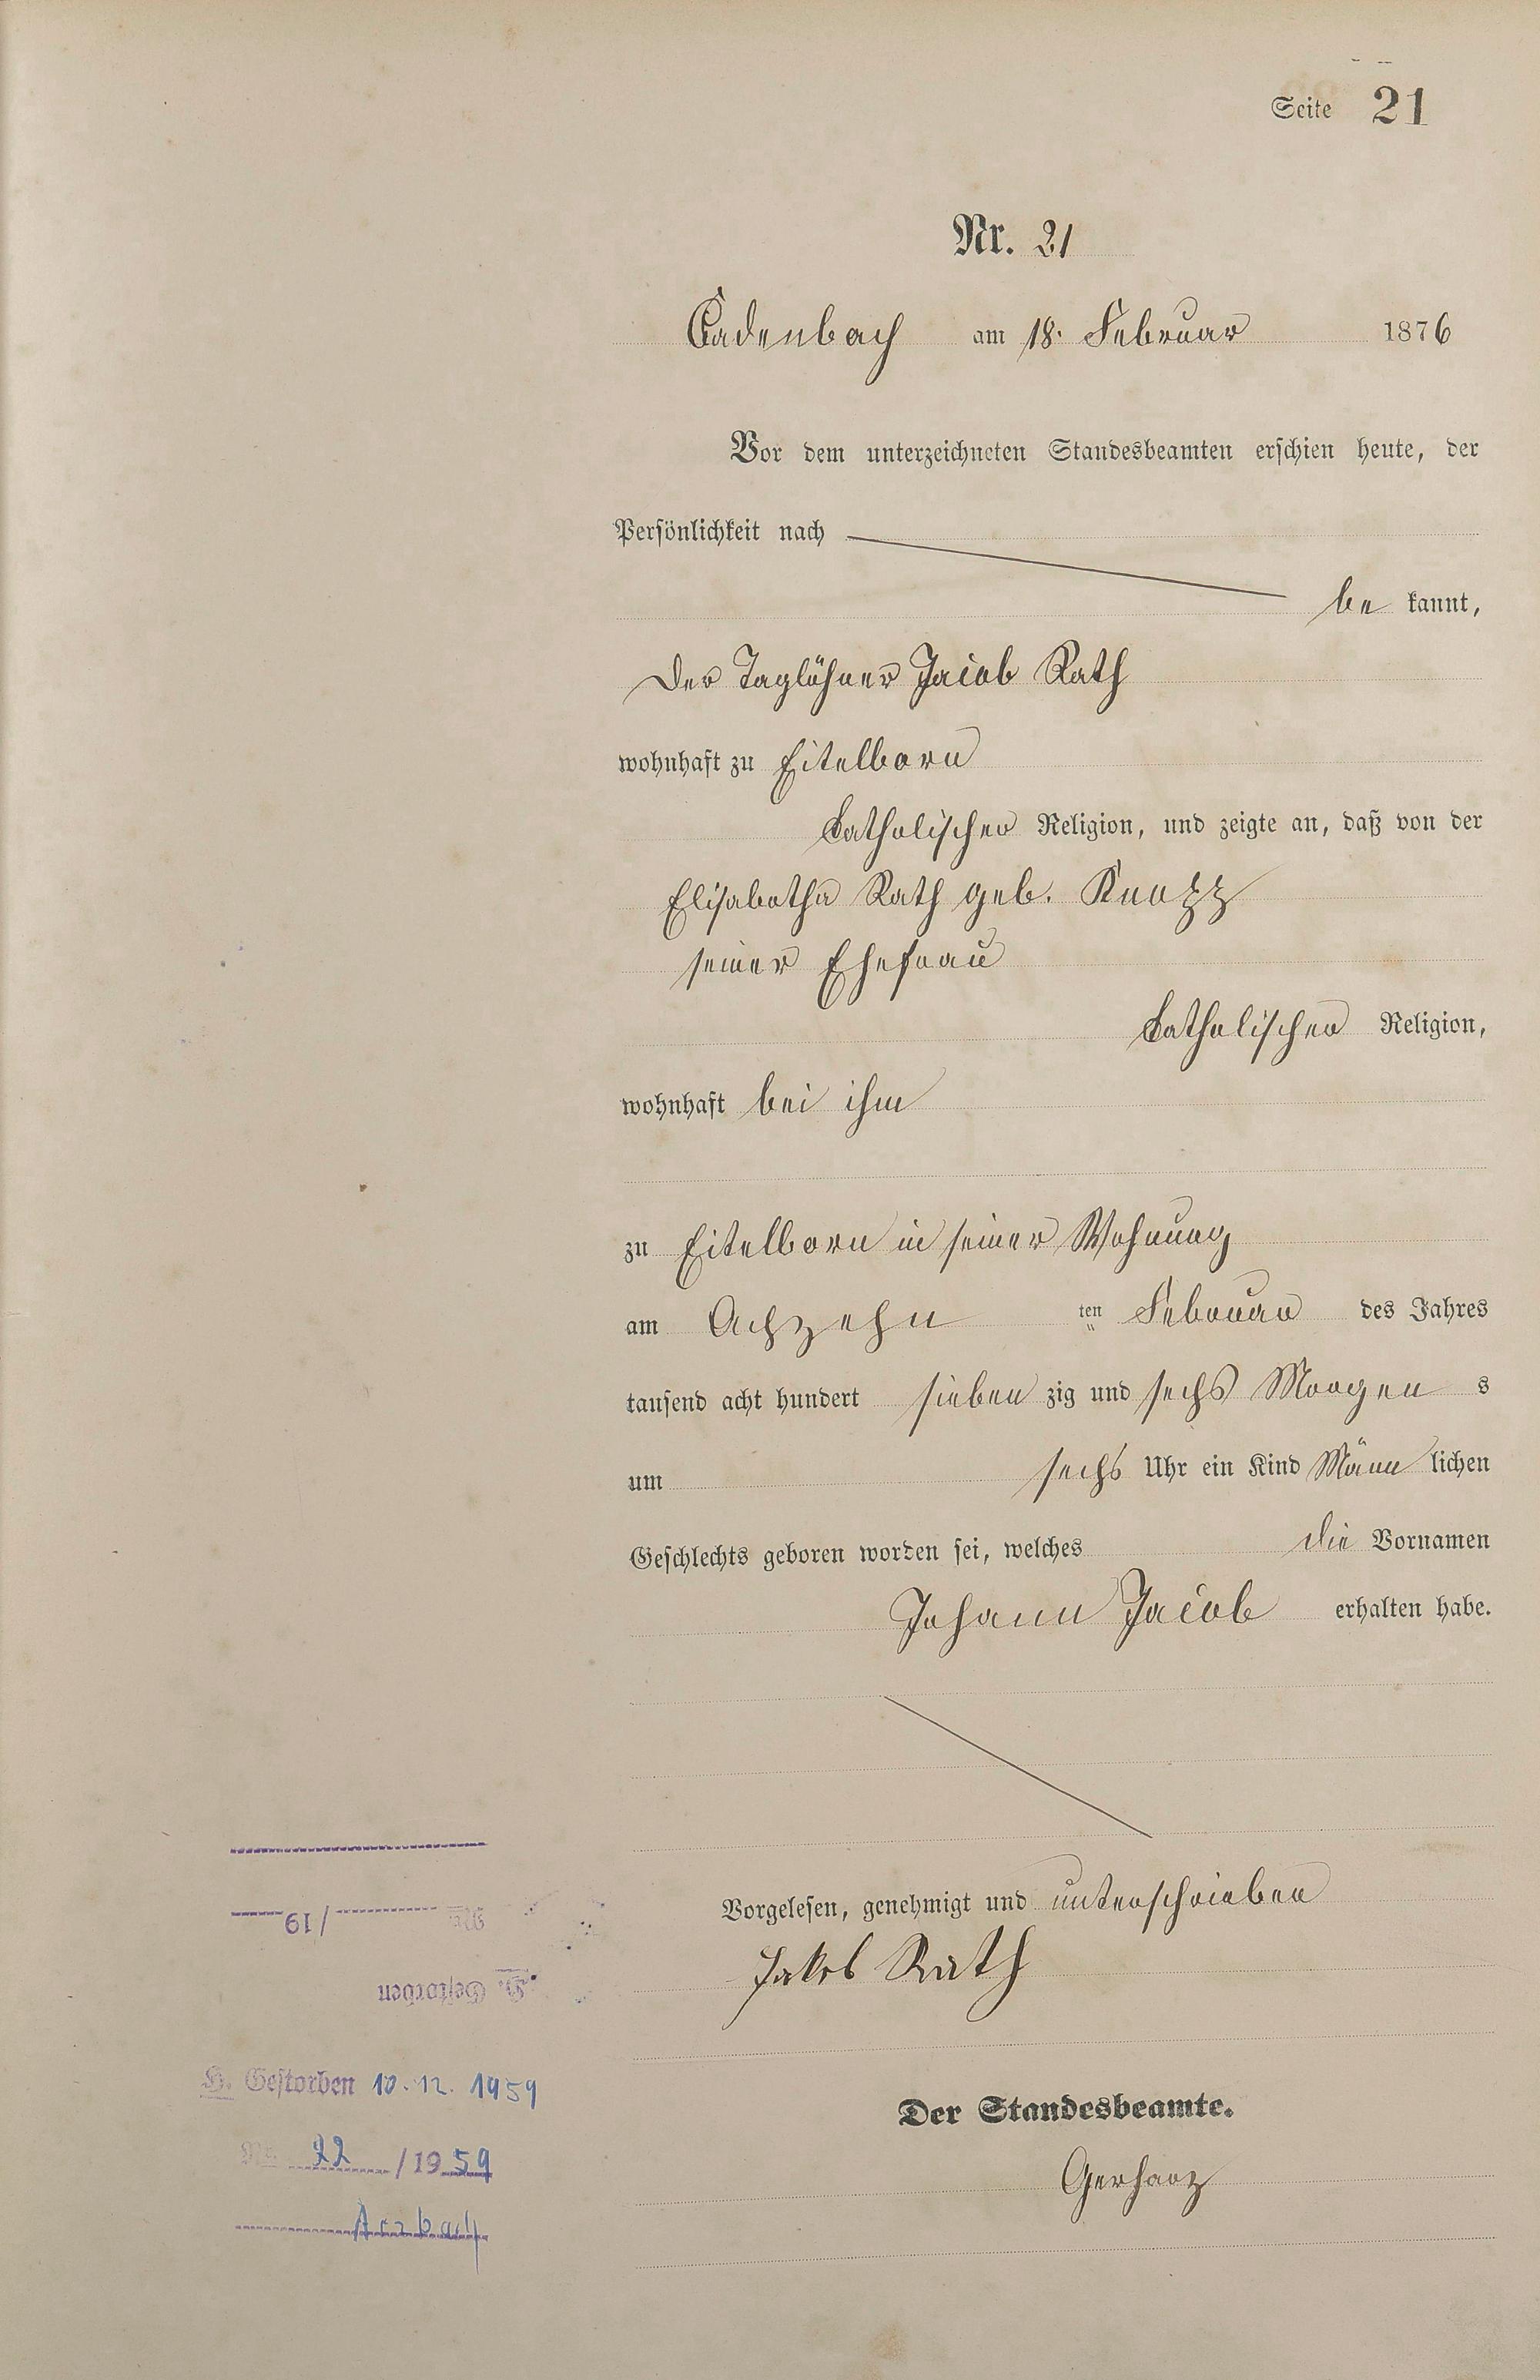 Seite 21
Nr. 21
Cadenbach am 18. Februar 1876
Vor dem unterzeichneten Standesbeamten erschien heute, der
Persönlichkeit nach
be kannt,
der Taglöhner Jacob Rath
wohnhaft zu Eitelborn
katholischer Religion, und zeigte an, daß von der
Elisabetha Rath geb. Knopp
seiner Ehefrau
katholischer Religion,
wohnhaft bei ihm
zu Eitelborn in seiner Wohnung
am Achzehn ten Februar des Jahres
tausend acht hundert sieben zig und sechs Morgen s
um sechs Uhr ein Kind Männ lichen
Geschlechts geboren worden sei, welches die Vornamen
Johann Jacob erhalten habe.
Vorgelesen, genehmigt und unterschrieben
Jakob Rath
Der Standesbeamte.
Gerharz
H. Gestorben
Nr. /19
H. Gestorben 10.12.1959
Nr. 22 /1959
Arzbach